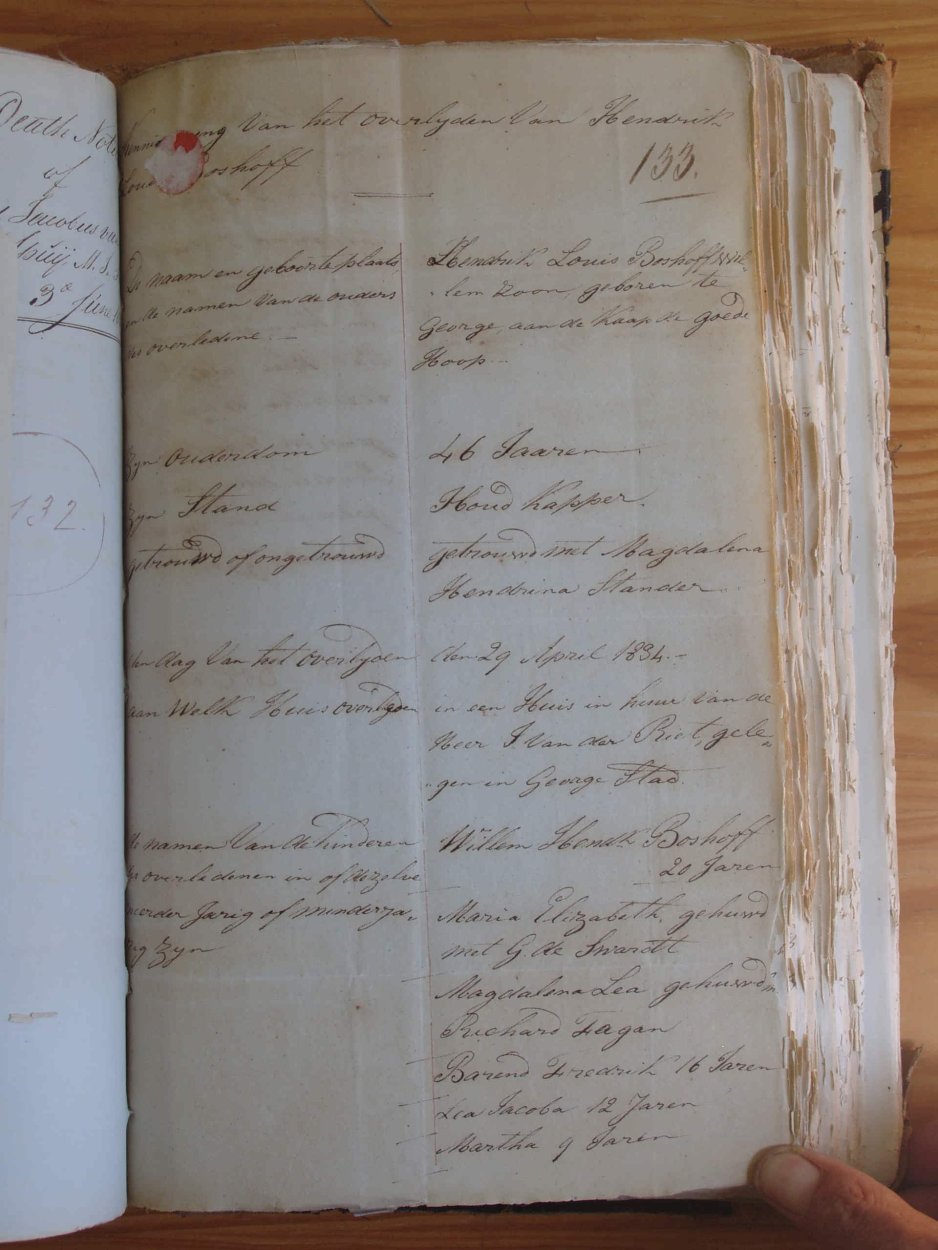 Death Not
of
Jacobus va
Spuij M.S.
3d June
132.
Van het overlyden Van Hendrik
Boshoff
133.
De naam en geboorte plaats
en de namen Van de ouders
des overledene. —
Hendrik Louis Boshoff Wil-
lem Zoon, geboren te
George, aan de Kaap de goede
Hoop —
Zyn Ouderdom
46 Jaaren
Zyn Stand
Houd Kapper
getrouwd of ongetrouwd
getrouwd met Magdalena
Hendrina Stander
den dag Van het overlyden
den 29 April 1834. —
aan Welk Huis overlyden
in een Huis in huur Van de
Heer J. Van der Riet, gele-
gen in George Stad.
de namen Van de Kinderen
overledenen in of dezelve
meerder Jarig of minderja-
rig Zyn
Willem Hendk Boshoff
20 Jaren
Maria Elizabeth, gehuwd
met G. de Swardt
Magdalena Lea gehuwd m
Richard Fagan
Barend Fredrik 16 Jaren
Lea Jacoba 12 Jaren
Martha 9 Jaren